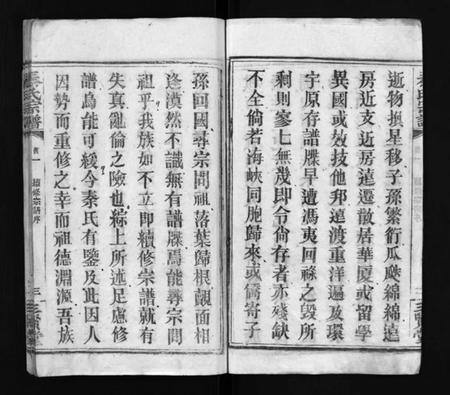 逝物換星移子孫繁衍瓜瓞綿綿遠
房近支近房遠遷散居華厦或留學
異國或效技他邦遠渡重洋遍及環
宇原存譜牒早遭馮夷回祿之毀所
剩則寥七無幾即令尙存者亦殘缺
不全倘若海峽同胞歸來或僑寄子
孫回國尋宗問祖落葉歸根覿面相
逢漠然不識無有譜牒焉能尋宗問
祖乎我族如不立即續修宗譜就有
失真亂倫之險也綜上所述足慮修
譜烏能可緩今秦氏有鑒及此因人
因勢而重修之幸而祖德淵源吾族
秦氏宗譜
首一
續修宗譜序
三
三